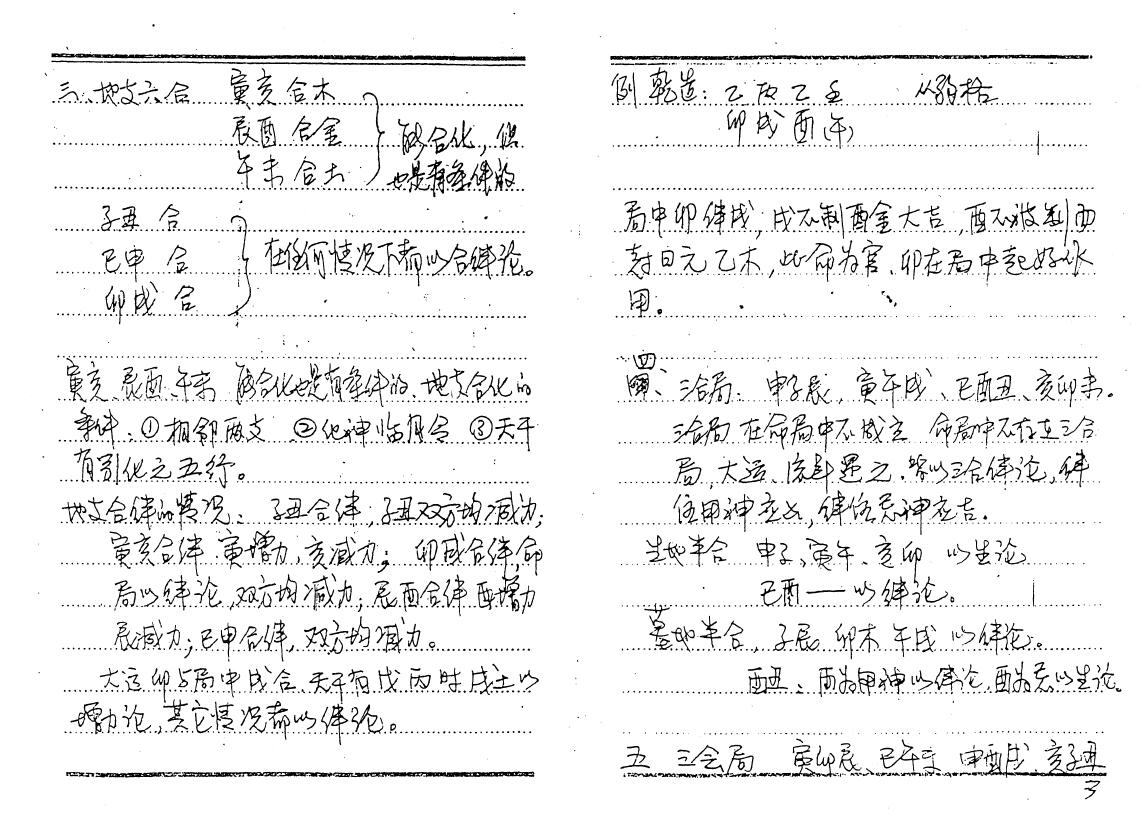 三、地支六合 寅亥合木
辰酉合金
午未合土
能合化，但
也是有条件的
子丑合
巳申合
卯戌合
在任何情况下都以合绊论。
寅亥、辰酉、午未 能合化也是有条件的、地支合化的
条件：①相邻两支 ②化神临月令 ③天干
有引化之五行。
地支合绊的情况：子丑合绊，子丑双方均减力；
寅亥合绊 寅增力，亥减力；卯戌合绊，命
局以绊论，双方均减力；辰酉合绊 酉增力
辰减力；巳申合绊，双方均减力。
大运卯与局中戌合、天干有戊丙时戌土以
增力论，其它情况都以绊论。
例 乾造：乙 丙 乙 壬 从弱格
卯 戌 酉（午）
局中卯绊戌，戌不制酉金大吉，酉不被制而
克日元乙木，此命为官、卯在局中起好作
用。
四、三合局：申子辰，寅午戌、巳酉丑、亥卯未。
三合局在命局中不成立 命局中不存在三合
局，大运、流年遇之，皆以三合绊论，绊
住用神应凶，绊住忌神应吉。
生地半合 申子、寅午、亥卯 以生论
巳酉——以绊论。
墓地半合，子辰 卯未 午戌 以绊论。
酉丑：酉为用神以绊论，酉为忌以生论。
五 三会局 寅卯辰、巳午未、申酉戌、亥子丑
3